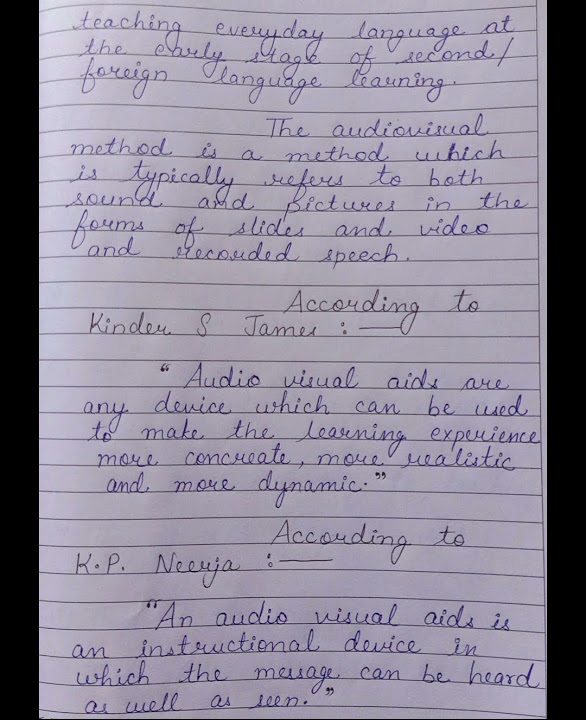 teaching everyday language at
the early stage of second/
foreign language learning.
The audiovisual
method is a method which
is typically refers to both
sound and pictures in the
forms of slides and video
and recorded speech.
According to
Kinder S James :—
" Audio visual aids are
any device which can be used
to make the learning experience
more concreate, more realistic
and more dynamic."
According to
K.P. Neerja :—
"An audio visual aids is
an instructional device in
which the message can be heard
as well as seen."